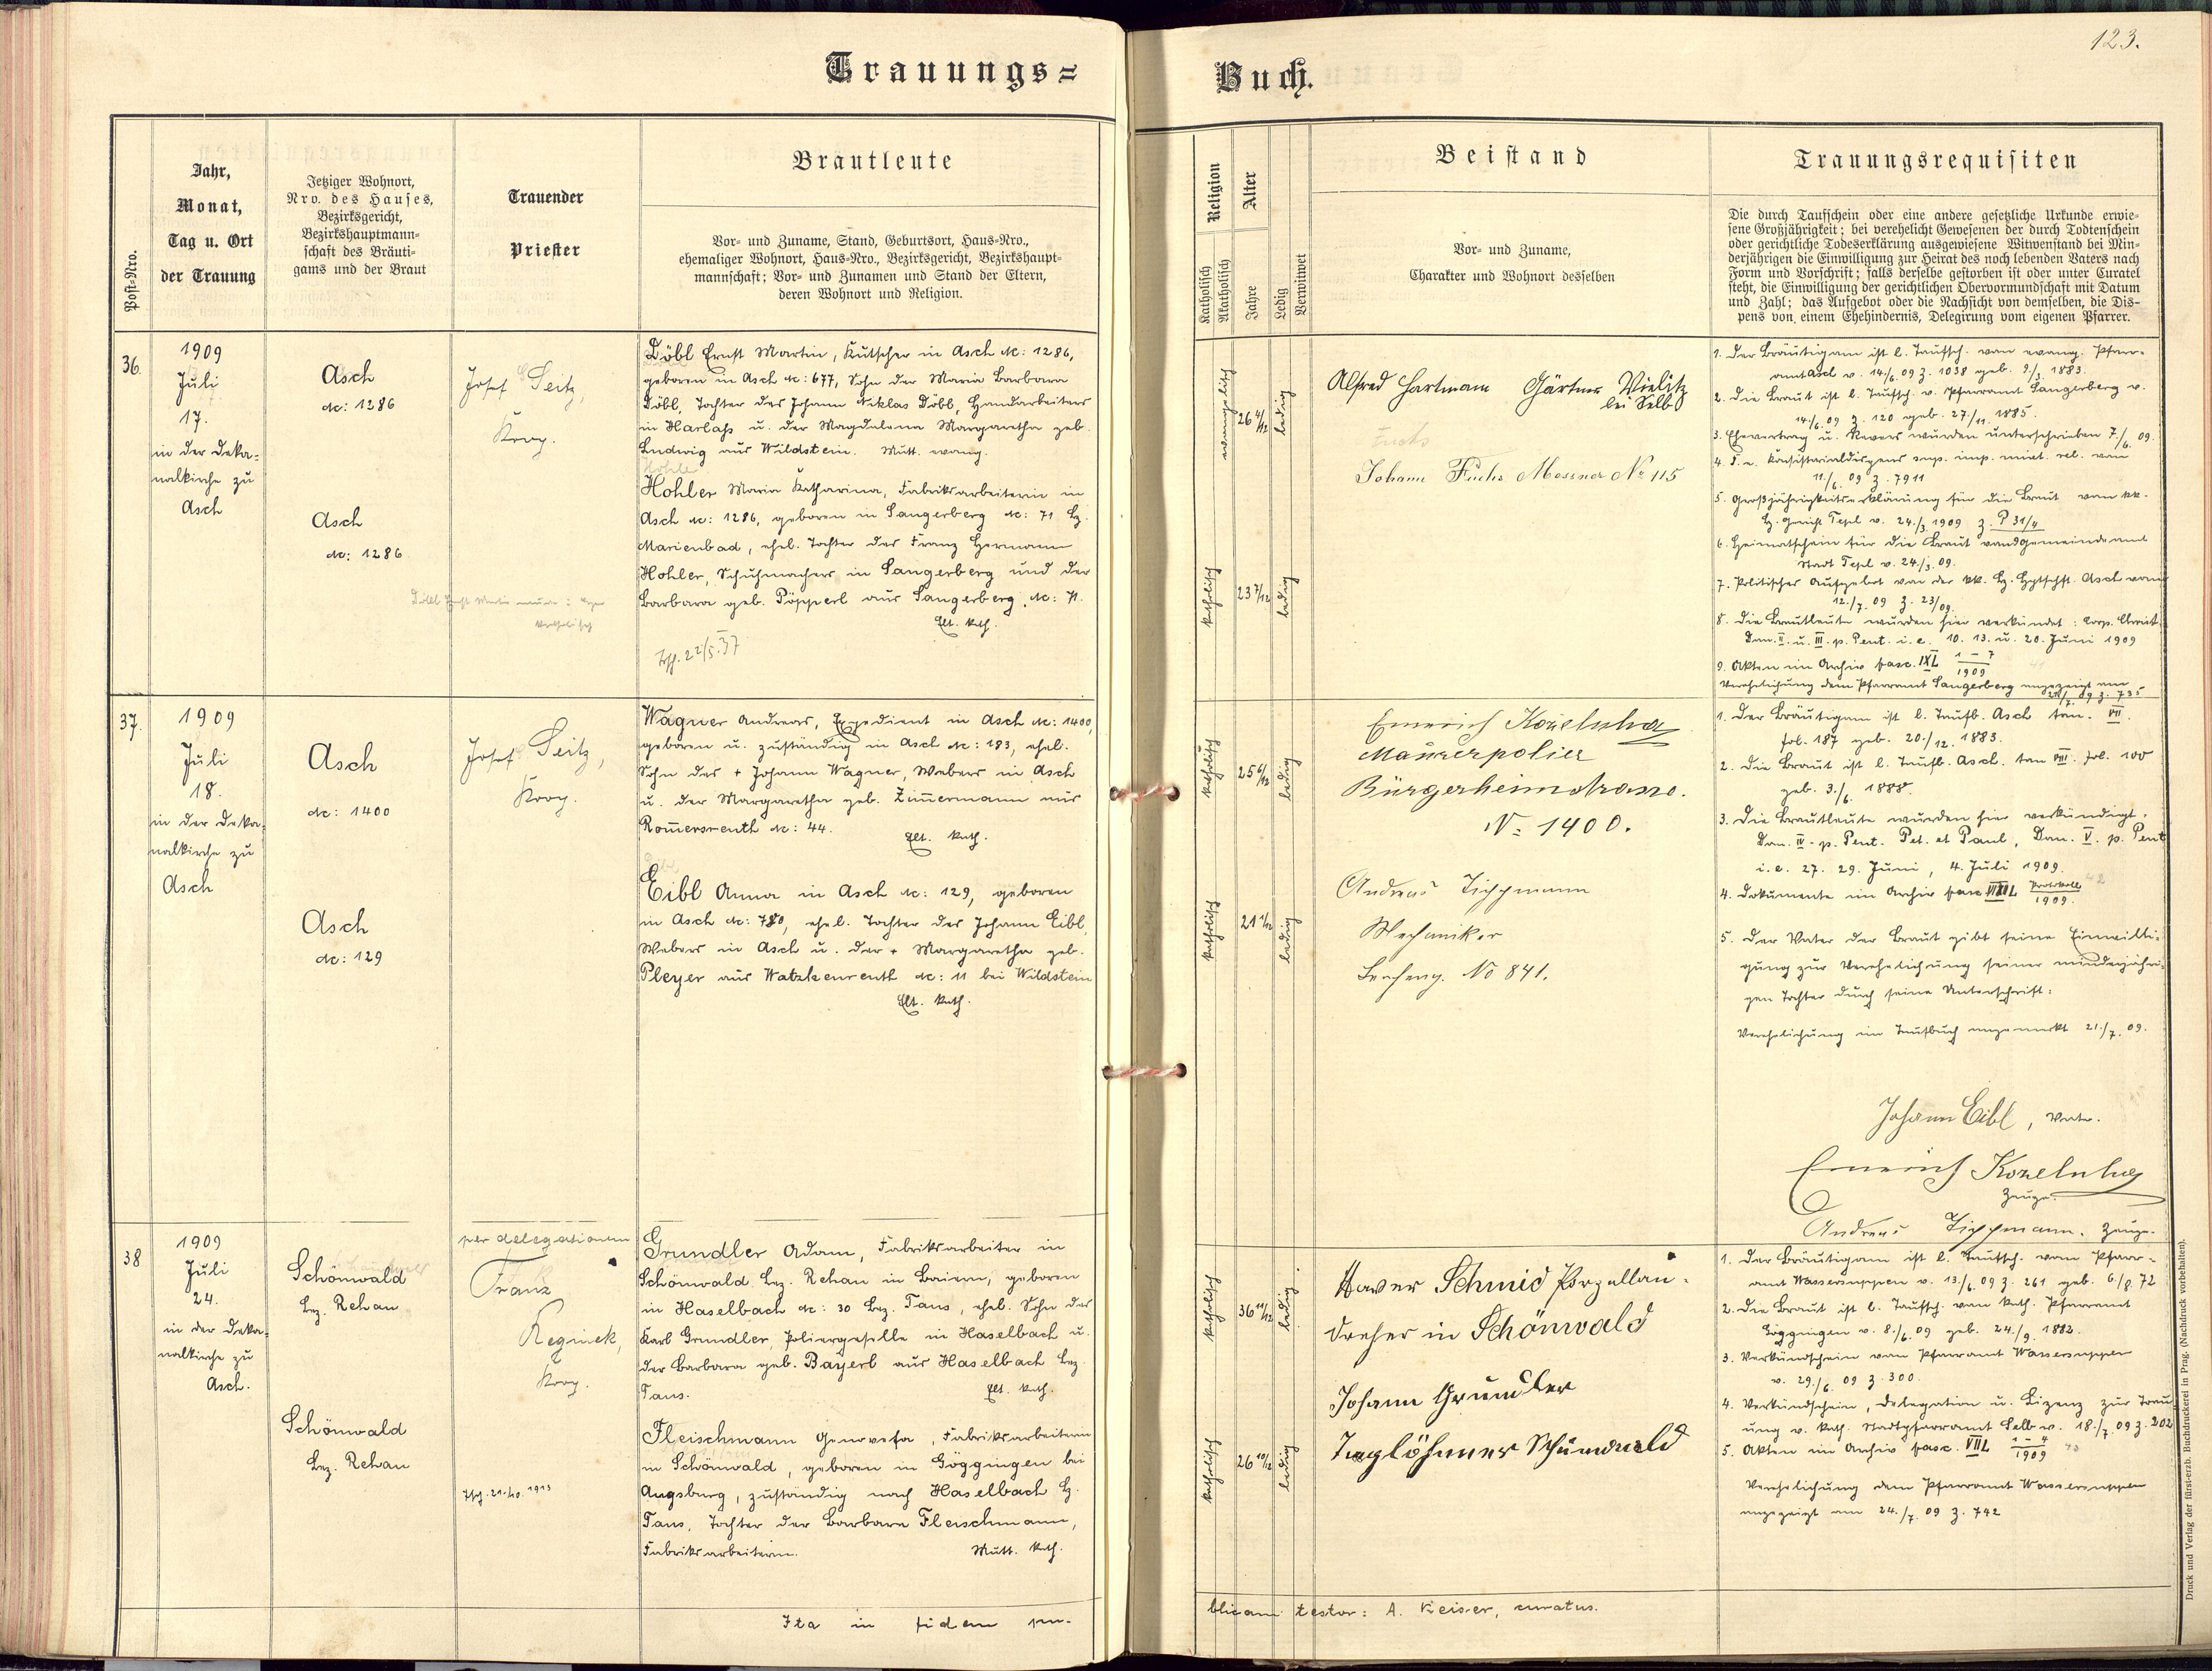 123.
Trauungs=
Buch.
Post-Nro.
Jahr,
Monat,
Tag u. Ort
der Trauung
Jetziger Wohnort,
Nro. des Hauses,
Bezirksgericht,
Bezirkshauptmann-
schaft des Bräuti-
gams und der Braut
Trauender
Priester
Brautleute
Vor- und Zuname, Stand, Geburtsort, Haus-Nro.,
ehemaliger Wohnort, Haus-Nro., Bezirksgericht, Bezirkshaupt-
mannschaft; Vor- und Zunamen und Stand der Eltern,
deren Wohnort und Religion.
Religion
Katholisch
Akatholisch
Alter
Jahre
Ledig
Verwitwet
Beistand
Vor- und Zuname,
Charakter und Wohnort desselben
Trauungsrequisiten
Die durch Taufschein oder eine andere gesetzliche Urkunde erwie-
sene Großjährigkeit; bei verehelicht Gewesenen der durch Todtenschein
oder gerichtliche Todeserklärung ausgewiesene Witwenstand bei Min-
derjährigen die Einwilligung zur Heirat des noch lebenden Vaters nach
Form und Vorschrift; falls derselbe gestorben ist oder unter Curatel
steht, die Einwilligung der gerichtlichen Obervormundschaft mit Datum
und Zahl; das Aufgebot oder die Nachsicht von demselben, die Dis-
pens von einem Ehehindernis, Delegirung vom eigenen Pfarrer.
36.
1909
Juli
17.
in der Deka=
nalkirche zu
Asch
Asch
No: 1286
Asch
No: 1286
Josef Seitz,
Koop.
Döbl Ernst Martin, Kutscher in Asch No: 1286,
geboren in Asch No: 677, Sohn der Maria Barbara
Döbl, Tochter des Johann Niklas Döbl, Handarbeiters
in Haslass u. der Magdalena Margaretha geb.
Ludwig aus Wildstein. Mutt. evang.
Hohler Maria Katharina, Fabriksarbeiterin in
Asch No: 1286, geboren in Sangerberg No: 71 Bz.
Marienbad, ehel. Tochter des Franz Hermann
Hohler, Schuhmachers in Sangerberg und der
Barbara geb. Pöpperl aus Sangerberg, No: 71.
Elt. kath.
22/5.37
evangelisch
26 4/12
ledig
katholisch
23 7/12
ledig
Alfred Hartmann Gärtner Vielitz
bei Selb
Fuchs
Johann Fuchs Messner No 115
1. Der Bräutigam ist l. Taufsch. vom evang. Pfarr-
amt Asch v. 14/6. 09 Z. 1038 geb. 9./3. 1883.
2. Die Braut ist l. Taufsch. v. Pfarramt Sangerberg v.
14/6. 09 Z. 120 geb. 27./11. 1885.
3. Ehevertrag u. Revers wurden unterschrieben 7./6. 09.
4. F. e. Konsistorialdispens sup. imp. mixt. rel. vom
11/6. 09 Z. 7911
5. Großjährigkeitserklärung für die Braut vom kk.
Bz. Gericht Tepl v. 24./3. 1909 Z. P 31/4
6. Heimatschein für die Braut vom Gemeindeamt
Stadt Tepl v. 24/3. 09.
7. Politisches Aufgebot von der kk. Bz. Hptschft. Asch vom
12./7. 09 Z. 23/09.
8. Die Brautleute wurden hier verkündet: Corp. Christi,
Dom. II. u. III. p. Pent. i. e. 10. 13. u. 20. Juni 1909
9. Akten im Archiv fasc. IXL 1-7/1909
Verehelichung dem Pfarramt Sangerberg angezeigt am
09 Z. 735
37.
1909
Juli
18.
in der Deka=
nalkirche zu
Asch
Asch
No: 1400
Asch
No: 129
Josef Seitz,
Koop.
Wagner Andreas, Expedient in Asch No: 1400,
geboren u. zuständig in Asch No: 183, ehel.
Sohn des + Johann Wagner, Webers in Asch
u. der Margaretha geb. Zimmermann aus
Rom̅ersreuth No: 44. Elt. kath.
Eibl Anna in Asch No: 129, geboren
in Asch No: 780, ehel. Tochter des Johann Eibl,
Webers in Asch u. der + Margaretha geb.
Pleyer aus Watzkenreuth No: 11 bei Wildstein
Elt. kath.
katholisch
25 6/12
ledig
katholisch
21 1/12
ledig
Emerich Koželuha
Maurerpolier
Bürgerheimstrasse.
No: 1400.
Andreas Tippmann
Mechaniker
No 841.
1. Der Bräutigam ist l. Taufb. Asch tom. VII.
fol. 187 geb. 20./12. 1883.
2. Die Braut ist l. Taufb. Asch. tom VIII. fol. 100
geb. 3./6. 1888.
3. Die Brautleute wurden hier verkündigt:
Dom. IV. p. Pent. Pet. et Paul, Dom. V. p. Pent
i. e. 27. 29. Juni, 4. Juli 1909.
4. Dokumente im Archiv fasc. Protokoll/1909.
5. Der Vater der Braut gibt seine Einwilli-
gung zur Verehelichung seiner minderjähri-
gen Tochter durch seine Unterschrift:
Verehelichung im Taufbuch angemerkt 21./7. 09.
Johann Eibl, Vater.
Emerich Koželuha
Zeuge.
Andreas Tippmann. Zeuge.
38
1909
Juli
24.
in der Deka=
nalkirche zu
Asch.
Schönwald
Bez. Rehau
Schönwald
Bez. Rehau
per delegationem
Franz
Regniek,
Koop.
21. 10. 1913
Grundler Adam, Fabriksarbeiter in
Schönwald Bez. Rehau in Baiern, geboren
in Haselbach No: 30 Bez. Taus, ehel. Sohn des
Karl Grundler, Poliergeselle in Haselbach u.
der Barbara geb. Bayerl aus Haselbach Bez.
Taus. Elt. kath.
Fleischmann Genovefa, Fabriksarbeiterin
in Schönwald, geboren in Göggingen bei
Augsburg, zuständig nach Haselbach Bz.
Taus, Tochter der Barbara Fleischmann,
Fabriksarbeiterin. Mutt. kath.
katholisch
36 11/12
ledig
katholisch
26 10/12
ledig
Xaver Schmid Porzellan-
dreher in Schönwald
Johann Grundler
Taglöhner Schönwald
1. Der Bräutigam ist l. Taufsch. vom Pfarr-
amt Wassersuppen v. 13./6. 09 Z. 261 geb. 6./8. 72
2. Die Braut ist l. Taufsch. vom kath. Pfarramt
Göggingen v. 8./6. 09 geb. 24./9. 1882.
3. Verkündschein vom Pfarramt Wassersuppen
v. 29./6. 09 Z. 300.
4. Verkündschein, Delegation u. Lizenz zur Trau-
ung v. kath. Stadtpfarramt Selb v. 18./7. 09 Z. 202
5. Akten im Archiv fasc. VIIL 1-4/1909
Verehelichung dem Pfarramt Wassersuppen
angezeigt am 24./7. 09 Z. 742
Ita in fidem pu-
blicam testor: A. Keiser, curatus.
Druck und Verlag der fürst-erzb. Buchdruckerei in Prag. (Nachdruck vorbehalten).